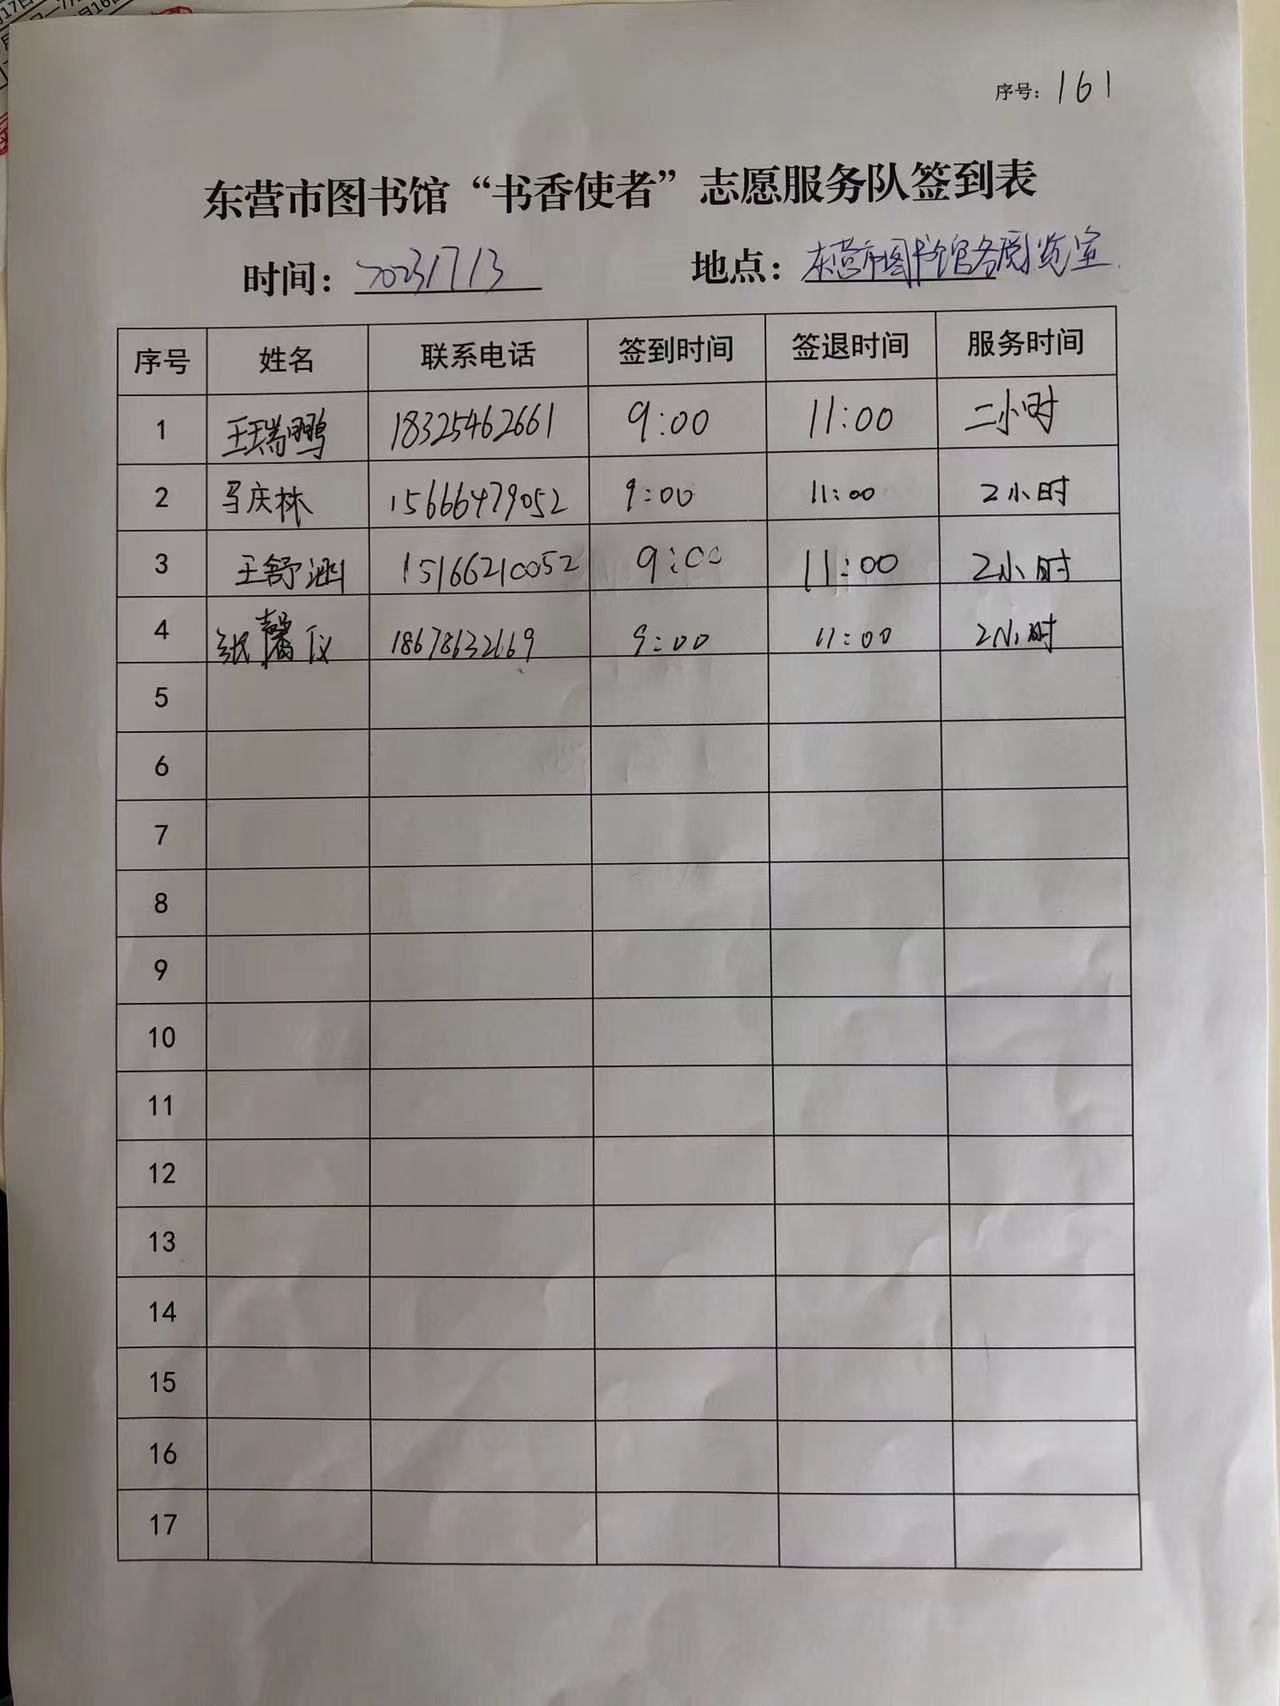 序号：161
东营市图书馆“书香使者”志愿服务队签到表
时间：2023/7/13 地点：东营市图书馆各阅览室
序号 姓名 联系电话 签到时间 签退时间 服务时间
1 王瑞鹏 18325462661 9:00 11:00 二小时
2 马庆林 15666479052 9:00 11:00 2小时
3 王舒涵 15166210052 9:00 11:00 2小时
4 馨仪 9:00 11:00 2小时
5
6
7
8
9
10
11
12
13
14
15
16
17